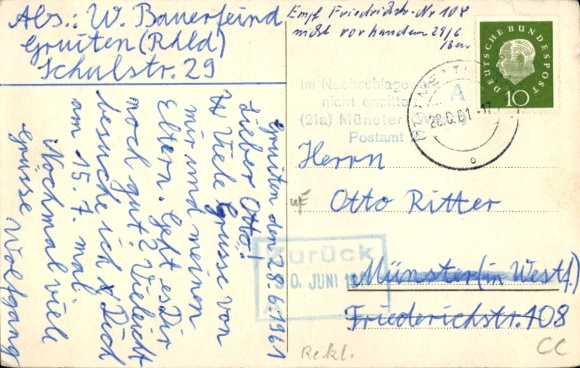 Abs.: W. Bauerfeind
Gruiten (Rhld)
Schulstr. 29
Gruiten den 28.6.1961
Lieber Otto!
Viele Grüsse von
mir und meinen
Eltern. Geht es Dir
noch gut? Vieleicht
besuche ich Dich
am 15.7. mal.
Nochmal viele
Grüsse Wolfgang
Empf. Friedrichstr. Nr 108
nicht vorhanden 29/6
DEUTSCHE BUNDESPOST
10
28.6.61.-17
Im Nachschlagewerk
nicht ermittelt
(21a) Münster
Postamt
A
Herrn
Otto Ritter
Münster (in Westf.)
Friederichstr. 108
Zurück
0. JUNI 19
Rekl.
CC